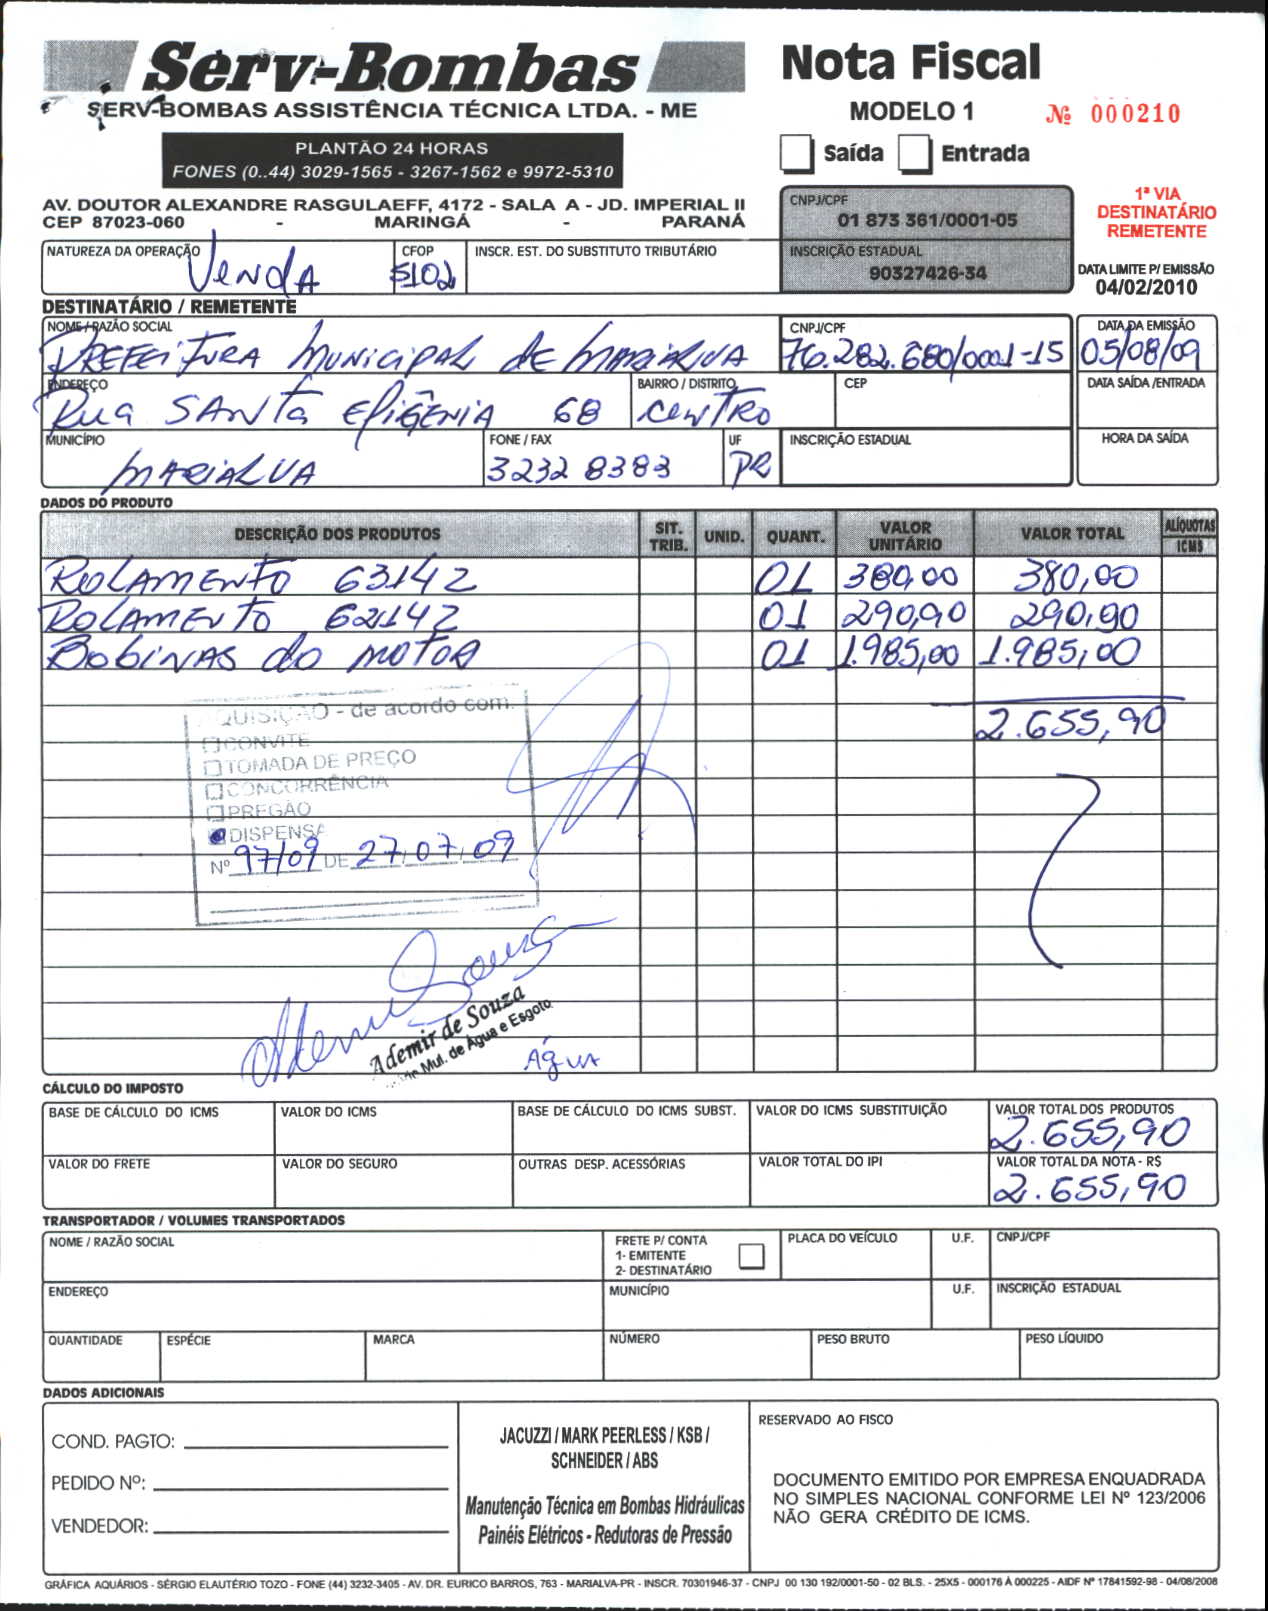 Serv-Bombas
SERV-BOMBAS ASSISTÊNCIA TÉCNICA LTDA. - ME
PLANTÃO 24 HORAS
FONES (0..44) 3029-1565 - 3267-1562 e 9972-5310
AV. DOUTOR ALEXANDRE RASGULAEFF, 4172 - SALA A - JD. IMPERIAL II
CEP 87023-060 - MARINGÁ - PARANÁ
Nota Fiscal
MODELO 1 Nº 000210
Saída Entrada
CNPJ/CPF
01 873 361/0001-05
INSCRIÇÃO ESTADUAL
90327426-34
1ª VIA
DESTINATÁRIO
REMETENTE
DATA LIMITE P/ EMISSÃO
04/02/2010
NATUREZA DA OPERAÇÃO CFOP INSCR. EST. DO SUBSTITUTO TRIBUTÁRIO
Venda 5102
DESTINATÁRIO / REMETENTE
NOME / RAZÃO SOCIAL CNPJ/CPF DATA DA EMISSÃO
PREFEITURA MUNICIPAL de MARIALVA 76.282.680/0001-15 05/08/09
ENDEREÇO BAIRRO / DISTRITO CEP DATA SAÍDA /ENTRADA
Rua SANTA EFIGÊNIA 68 CENTRO
MUNICÍPIO FONE / FAX UF INSCRIÇÃO ESTADUAL HORA DA SAÍDA
MARIALVA 3232 8383 PR
DADOS DO PRODUTO
DESCRIÇÃO DOS PRODUTOS SIT. TRIB. UNID. QUANT. VALOR UNITÁRIO VALOR TOTAL ALÍQUOTAS ICMS
ROLAMENTO 6314Z 01 380,00 380,00
ROLAMENTO 6214Z 01 290,90 290,90
BOBINAS do MOTOR 01 1.985,00 1.985,00
2.655,90
AQUISIÇÃO - de acordo com:
CONVITE
TOMADA DE PREÇO
CONCORRÊNCIA
PREGÃO
DISPENSA
Nº 97/09 DE 27/07/09
Ademir de Souza
Mul. de Água e Esgoto
Água
CÁLCULO DO IMPOSTO
BASE DE CÁLCULO DO ICMS VALOR DO ICMS BASE DE CÁLCULO DO ICMS SUBST. VALOR DO ICMS SUBSTITUIÇÃO VALOR TOTAL DOS PRODUTOS
2.655,90
VALOR DO FRETE VALOR DO SEGURO OUTRAS DESP. ACESSÓRIAS VALOR TOTAL DO IPI VALOR TOTAL DA NOTA - R$
2.655,90
TRANSPORTADOR / VOLUMES TRANSPORTADOS
NOME / RAZÃO SOCIAL FRETE P/ CONTA PLACA DO VEÍCULO U.F. CNPJ/CPF
1- EMITENTE
2- DESTINATÁRIO
ENDEREÇO MUNICÍPIO U.F. INSCRIÇÃO ESTADUAL
QUANTIDADE ESPÉCIE MARCA NÚMERO PESO BRUTO PESO LÍQUIDO
DADOS ADICIONAIS
COND. PAGTO:
PEDIDO Nº:
VENDEDOR:
JACUZZI / MARK PEERLESS / KSB /
SCHNEIDER / ABS
Manutenção Técnica em Bombas Hidráulicas
Painéis Elétricos - Redutoras de Pressão
RESERVADO AO FISCO
DOCUMENTO EMITIDO POR EMPRESA ENQUADRADA
NO SIMPLES NACIONAL CONFORME LEI Nº 123/2006
NÃO GERA CRÉDITO DE ICMS.
GRÁFICA AQUÁRIOS - SÉRGIO ELAUTÉRIO TOZO - FONE (44) 3232-3405 - AV. DR. EURICO BARROS, 763 - MARIALVA-PR - INSCR. 70301946-37 - CNPJ 00 130 192/0001-50 - 02 BLS. - 25X5 - 000176 À 000225 - AIDF Nº 17841592-98 - 04/08/2008